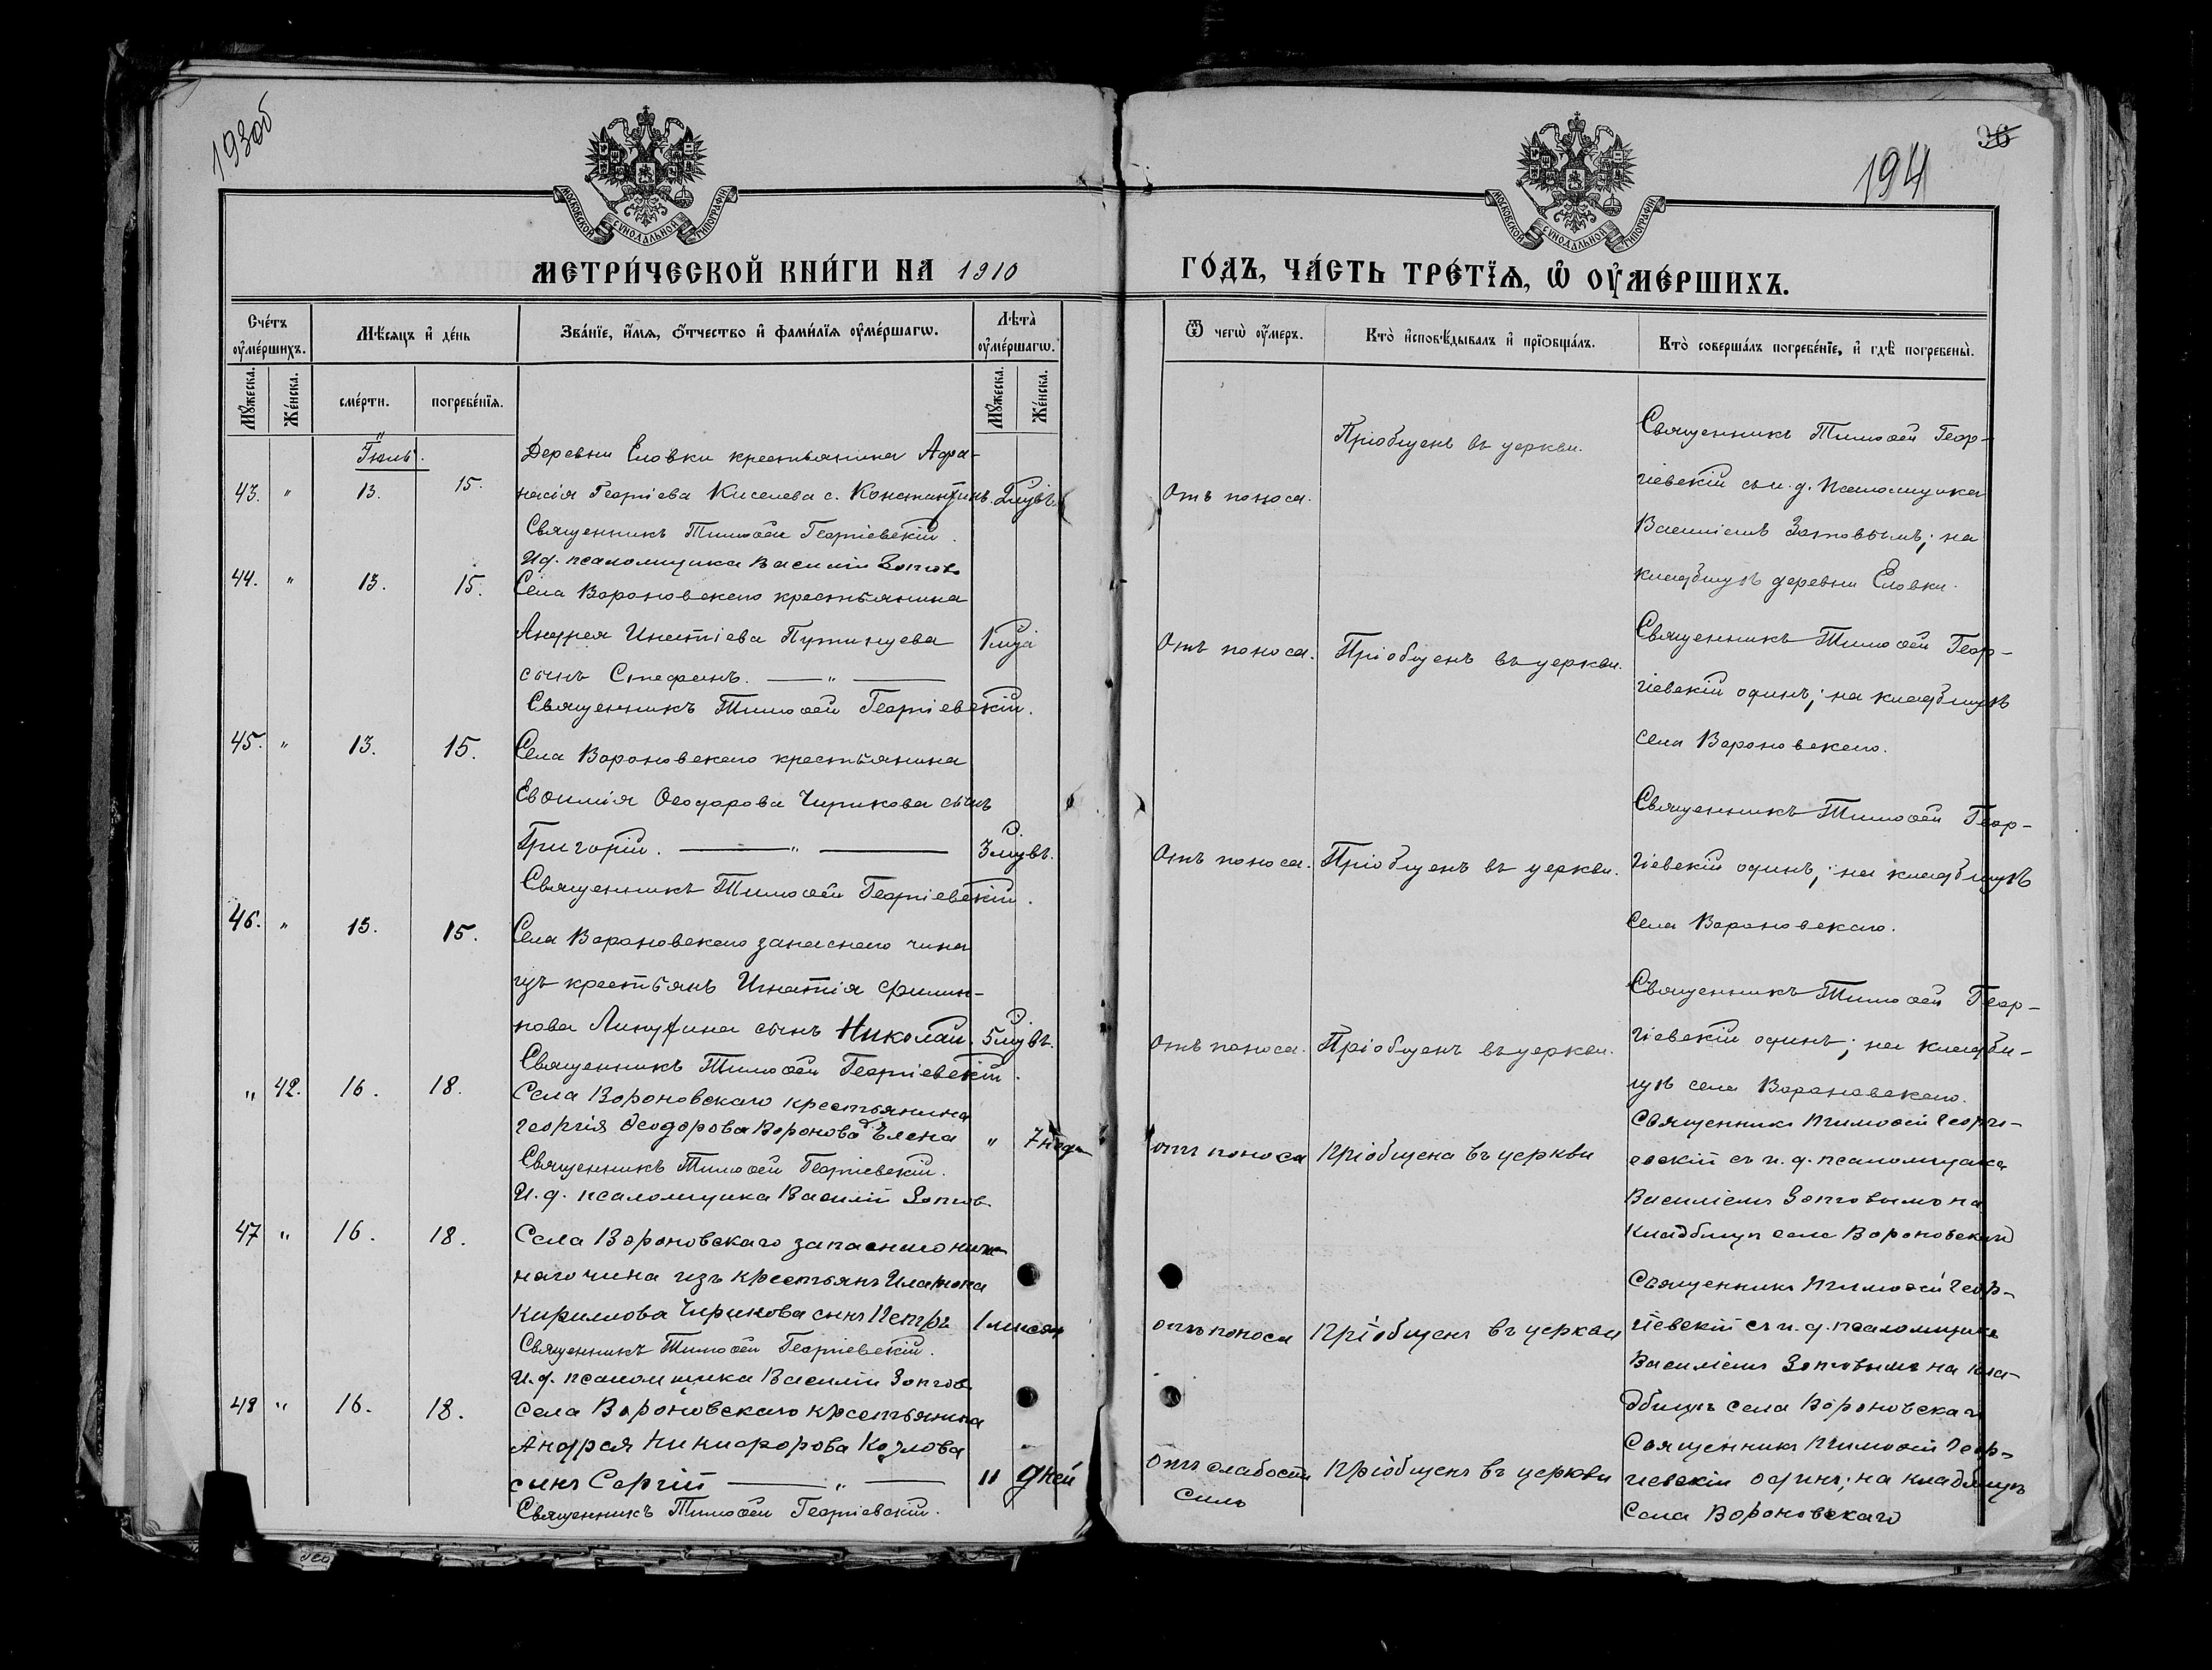 193об
194
96
МОСКОВСКОЙ СѴНОДАЛЬНОЙ ТИПОГРАФІИ
МОСКОВСКОЙ СѴНОДАЛЬНОЙ ТИПОГРАФІИ
МЕТРИ́ЧЕСКОЙ КНИ́ГИ НА 1910
ГО́ДЪ, ЧА́СТЬ ТРЕ́ТЇѦ, Ѡ ОУМЕ́РШИХЪ.
Сче́тъ оуме́ршихъ.
Мѣ́сяцъ и де́нь
Зва́нїе, и́мѧ, ѻ҆́тчество и фами́лїѧ оуме́ршагѡ.
Лѣта̀ оуме́ршагѡ.
Ѿ чегѡ̀ оу́меръ.
Кто̀ и҆сповѣ́дывалъ и҆ прїѻбща́лъ.
Кто̀ соверша́лъ погребе́нїе, и҆ гдѣ̀ погребены̀.
Мꙋ́жеска.
Же́нска.
сме́рти.
погребе́нїѧ.
Мꙋ́жеска.
Же́нска.
Іюль.
43. " 13. 15.
Деревни Еловки крестьянина Афа-
насія Георгіева Киселева с. Константинъ. 2 мѣс.
Священникъ Тимоѳей Георгіевскій.
И.д. псаломщика Василій Зотов
Отъ поноса.
Пріобщенъ въ церкви.
Священникъ Тимоѳей Геор-
гіевскій съ и. д. псаломщика
Василіемъ Зотовымъ; на
кладбищѣ деревни Еловки.
44. " 13. 15.
Села Вороновскаго крестьянина
Андрея Игнатіева
сынъ Стефанъ. — " —
Священникъ Тимоѳей Георгіевскій.
Отъ поноса.
Пріобщенъ въ церкви.
Священникъ Тимоѳей Геор-
гіевскій одинъ; на кладбищѣ
села Вороновскаго.
45. " 13. 15.
Села Вороновскаго крестьянина
Евѳимія Ѳеодорова Чирикова сынъ
Григорій. — " — 3 мѣс.
Священникъ Тимоѳей Георгіевскій.
Отъ поноса.
Пріобщенъ въ церкви.
Священникъ Тимоѳей Геор-
гіевскій одинъ; на кладбищѣ
села Вороновскаго.
46. " 13. 15.
Села Вороновскаго запаснаго чина
изъ крестьянъ Игнатія Филип-
пова сынъ Николай. 5 мѣс.
Священникъ Тимоѳей Георгіевскій.
Отъ поноса.
Пріобщенъ въ церкви.
Священникъ Тимоѳей Геор-
гіевскій одинъ; на кладби-
щѣ села Вороновскаго.
" 42. 16. 18.
Села Вороновскаго крестьянина
Георгія Ѳеодорова Воронова д. Елена " 7 нед
Священникъ Тимоѳей Георгіевскій.
И. д. псаломщика Василій Зотов
отъ поноса
пріобщена въ церкви
Священникъ Тимоѳей Георгі-
евскій съ и. д. псаломщика
Василіемъ Зотовымъ на
кладбищѣ села Вороновскаго
47 " 16. 18.
Села Вороновскаго запаснаго ниж-
наго чина изъ крестьянъ Платона
Кириллова Чирикова сынъ Петръ 1 мѣсяц
Священникъ Тимоѳей Георгіевскій.
И. д. псаломщика Василій Зотов
отъ поноса
пріобщенъ въ церкви
Священникъ Тимоѳей Геор-
гіевскій съ и. д. псаломщика
Василіемъ Зотовымъ на кла-
дбищѣ села Вороновскаго
48 " 16. 18.
Села Вороновскаго крестьянина
Андрея Никифорова Козлова
сынъ Сергій — " — 11 дней
Священникъ Тимоѳей Георгіевскій.
отъ слабости
силъ
пріобщенъ въ церкви
Священникъ Тимоѳей Геор-
гіевскій одинъ; на кладбищѣ
Села Вороновскаго